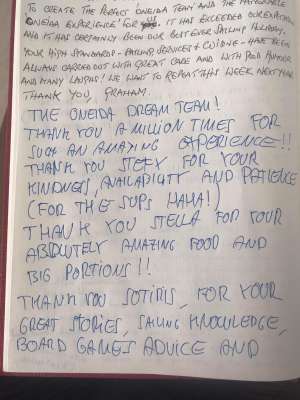 TO CREATE THE PERFECT ONEIDA TEAM AND THE MEMORABLE
'ONEIDA EXPERIENCE' FOR US. IT HAS EXCEEDED OUR EXPECTATIONS
AND IT HAS CERTAINLY BEEN OUR BEST EVER SAILING HOLIDAY.
YOUR HIGH STANDARDS - SAILING, SERVICES & CUISINE - HAVE BEEN
ALWAYS CARRIED OUT WITH GREAT CARE AND WITH GOOD HUMOUR
AND MANY LAUGHS! WE WANT TO REPEAT THIS WEEK NEXT YEAR.
THANK YOU, GRAHAM.
THE ONEIDA DREAM TEAM!
THANK YOU A MILLION TIMES FOR
SUCH AN AMAZING EXPERIENCE!!
THANK YOU STEFY FOR YOUR
KINDNESS, AVAILABILITY AND PATIENCE
(FOR THE SUPS HAHA!)
THANK YOU STELLA FOR YOUR
ABSOLUTELY AMAZING FOOD AND
BIG PORTIONS!!
THANK YOU SOTIRIS, FOR YOUR
GREAT STORIES, SAILING KNOWLEDGE,
BOARD GAMES ADVICE AND